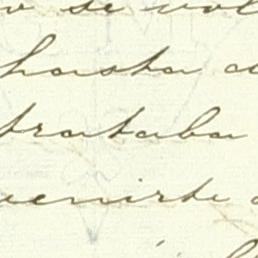 se vol
hasta
trataba
venirte